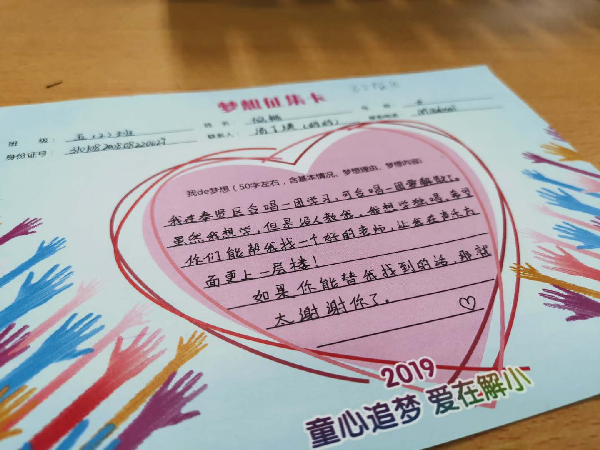 梦想征集卡
班 级: 五(2)班 姓 名:
身份证号: 联系人: (妈妈)
我de梦想(50字左右,含基本情况、梦想理由、梦想内容)
我在奉贤区合唱一团学习,可合唱一团要解散了。
虽然我想学,但是没人教我,我想学独唱,希望
你们能帮我找一个好的老师,让我在声乐方
面更上一层楼!
如果你能替我找到的话,那就
太谢谢你了。
2019
童心追梦 爱在解小